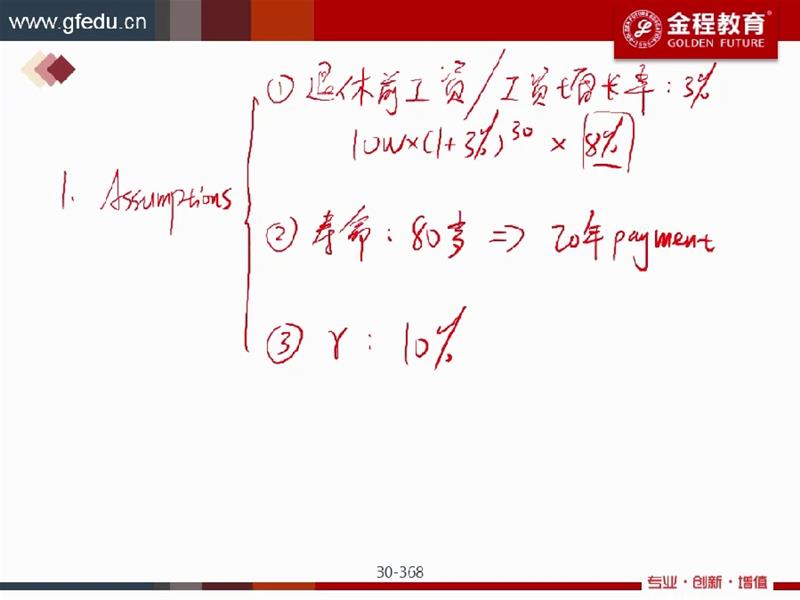 www.gfedu.cn
金程教育®
GOLDEN FUTURE
① 退休前工资/工资增长率:3%
10w×(1+3%)^30 × 8%
1. Assumptions
② 寿命:80岁 => 20年payment
③ r: 10%
30-368
专业·创新·增值